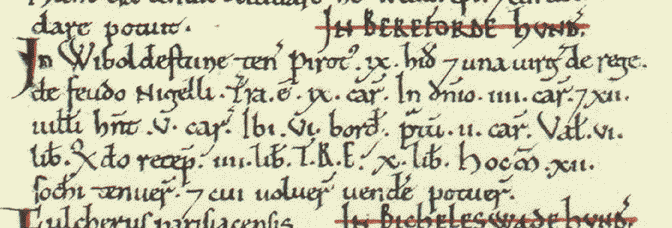 dare potuit. IN BEREFORDE HVND̃.
In Wiboldestune ten̄ Pirot᷒. ix. hid̃ ⁊ una uirg̃ de rege.
de feudo Nigelli. Tr̃a. ē. ix. car̃. In dñio. iiii. car̃. ⁊ xii.
uilli hñt .v. car̃. Ibi. vi. bord̃. p̃tũ. ii. car̃. Val̃. vi.
lib̃. Q̃do recep̃. iiii. lib̃. T.R.E. x. lib̃. Hoc m̃. xii.
sochi tenuer̃. ⁊ cui uoluer̃ uend̃e potuer̃.
Fulcherus parisiacensis IN BICHELESWADE HVND̃.